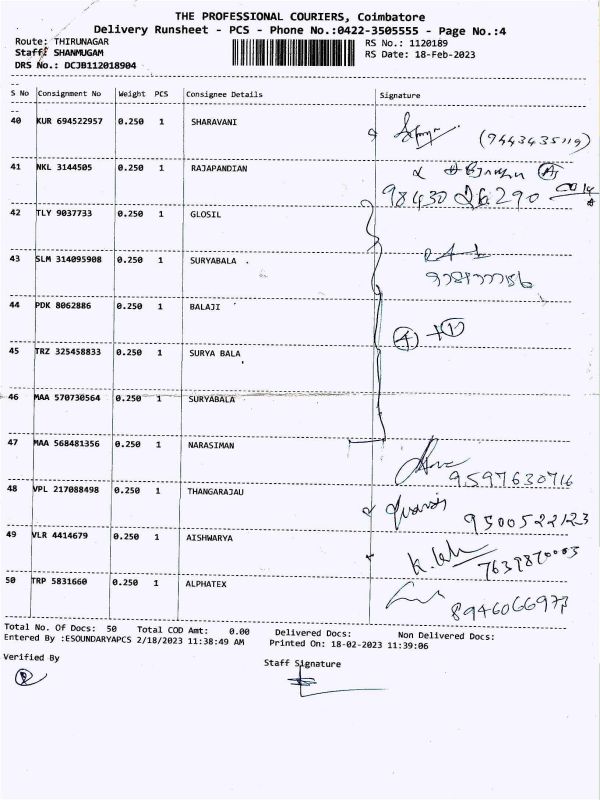 THE PROFESSIONAL COURIERS, Coimbatore
Delivery Runsheet - PCS - Phone No.:0422-3505555 - Page No.:4
Route: THIRUNAGAR RS No.: 1120189
Staff: SHANMUGAM RS Date: 18-Feb-2023
DRS No.: DCJB112018904
S No Consignment No Weight PCS Consignee Details Signature
40 KUR 694522957 0.250 1 SHARAVANI (9443435119)
41 NKL 3144505 0.250 1 RAJAPANDIAN
42 TLY 9037733 0.250 1 GLOSIL
43 SLM 314095908 0.250 1 SURYABALA
44 PDK 8062886 0.250 1 BALAJI
45 TRZ 325458833 0.250 1 SURYA BALA
46 MAA 570730564 0.250 1 SURYABALA
47 MAA 568481356 0.250 1 NARASIMAN
9597630716
48 VPL 217088498 0.250 1 THANGARAJAU
9500522123
49 VLR 4414679 0.250 1 AISHWARYA
7639870003
50 TRP 5831660 0.250 1 ALPHATEX
8946066973
Total No. Of Docs: 50 Total COD Amt: 0.00 Delivered Docs: Non Delivered Docs:
Entered By :ESOUNDARYAPCS 2/18/2023 11:38:49 AM Printed On: 18-02-2023 11:39:06
Verified By Staff Signature